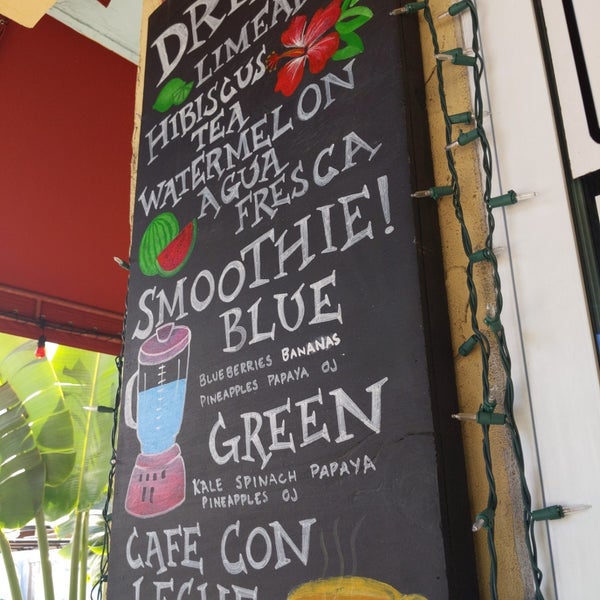 LIMEA
HIBISCUS
TEA
WATERMELON
AGUA
FRESCA
SMOOTHIE!
BLUE
BLUEBERRIES BANANAS
PINEAPPLES PAPAYA OJ
GREEN
KALE SPINACH PAPAYA
PINEAPPLES OJ
CAFE CON
LECHE